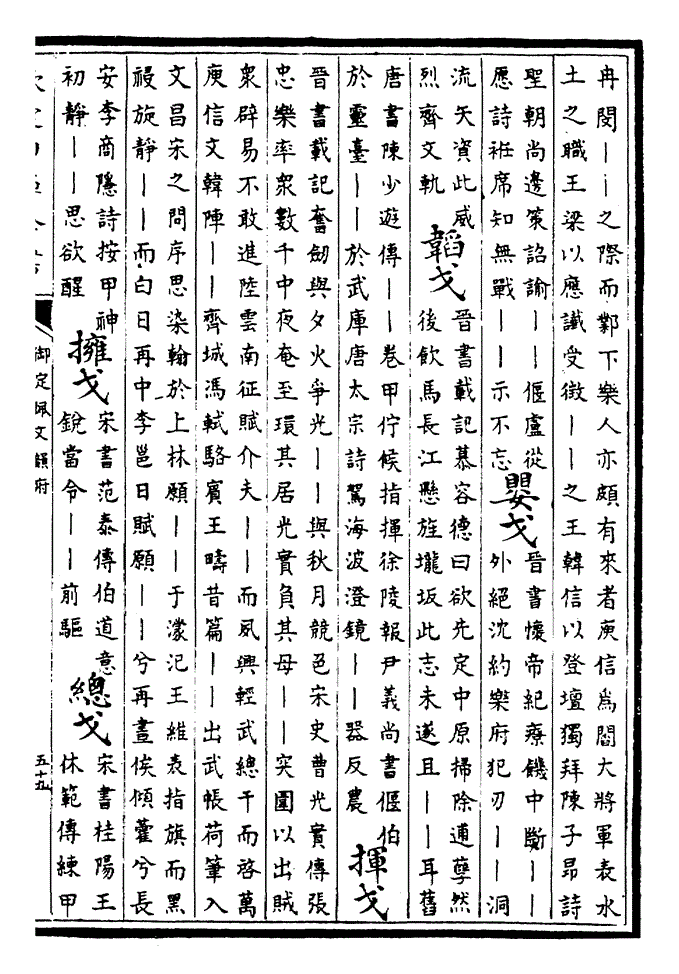 冉閔丨丨之際而鄴下樂人亦頗有來者庾信爲閻大將軍表水
土之職王梁以應讖受徵丨丨之王韓信以登壇獨拜陳子昂詩
聖朝尚邊策詔諭丨丨偃盧從
愿詩袵席知無戰丨丨示不忘
嬰戈
晉書懷帝紀療饑中斷丨丨
外絕沈約樂府犯刃丨丨洞
流矢資此威
烈齊文軌
韜戈
晉書載記慕容德曰欲先定中原掃除逋孽然
後飲馬長江懸旌壠坂此志未遂且丨丨耳舊
唐書陳少遊傳丨丨卷甲佇候指揮徐陵報尹義尚書偃伯
於靈臺丨丨於武庫唐太宗詩駕海波澄鏡丨丨器反農
揮戈
晉書載記奮劒與夕火爭光丨丨與秋月競色宋史曹光實傳張
忠樂率衆數千中夜奄至環其居光實負其母丨丨突圍以出賊
衆辟易不敢進陸雲南征賦介夫丨丨而夙興輕武總干而啓萬
庾信文韓陣丨丨齊城馮軾駱賓王疇昔篇丨丨出武帳荷筆入
文昌宋之問序思染翰於上林願丨丨于濛汜王維表指旗而黑
祲旋靜丨丨而白日再中李邕日賦願丨丨兮再晝俟傾藿兮長
安李商隱詩按甲神
初靜丨丨思欲醒
擁戈
宋書范泰傳伯道意
銳當令丨丨前驅
總戈
宋書桂陽王
休範傳練甲
御定佩文韻府
五十九